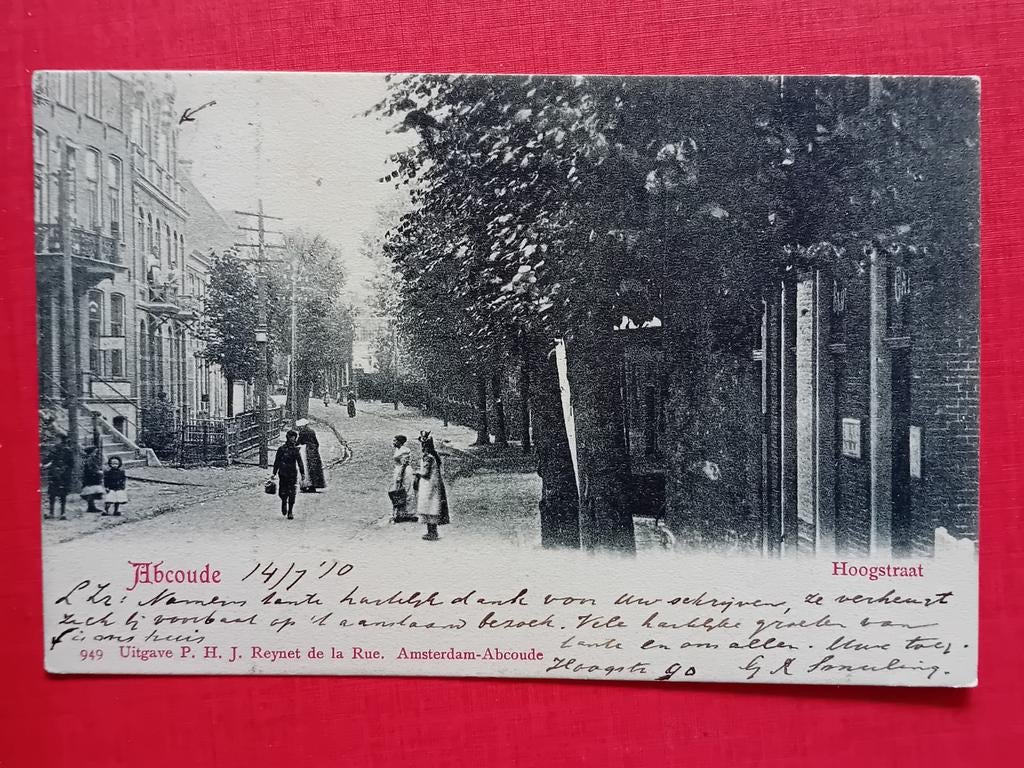 Abcoude 14/7 '10
Hoogstraat
L Zr: Namens tante hartelijk dank voor Uw schrijven, ze verheugt
zich bij voorbaat op 't aanstaaw bezoek. Vele hartelijke groeten van
ons huis
tante en ons allen. Uwe toeg.
949 Uitgave P. H. J. Reynet de la Rue. Amsterdam-Abcoude
Hoogstr 90 G R